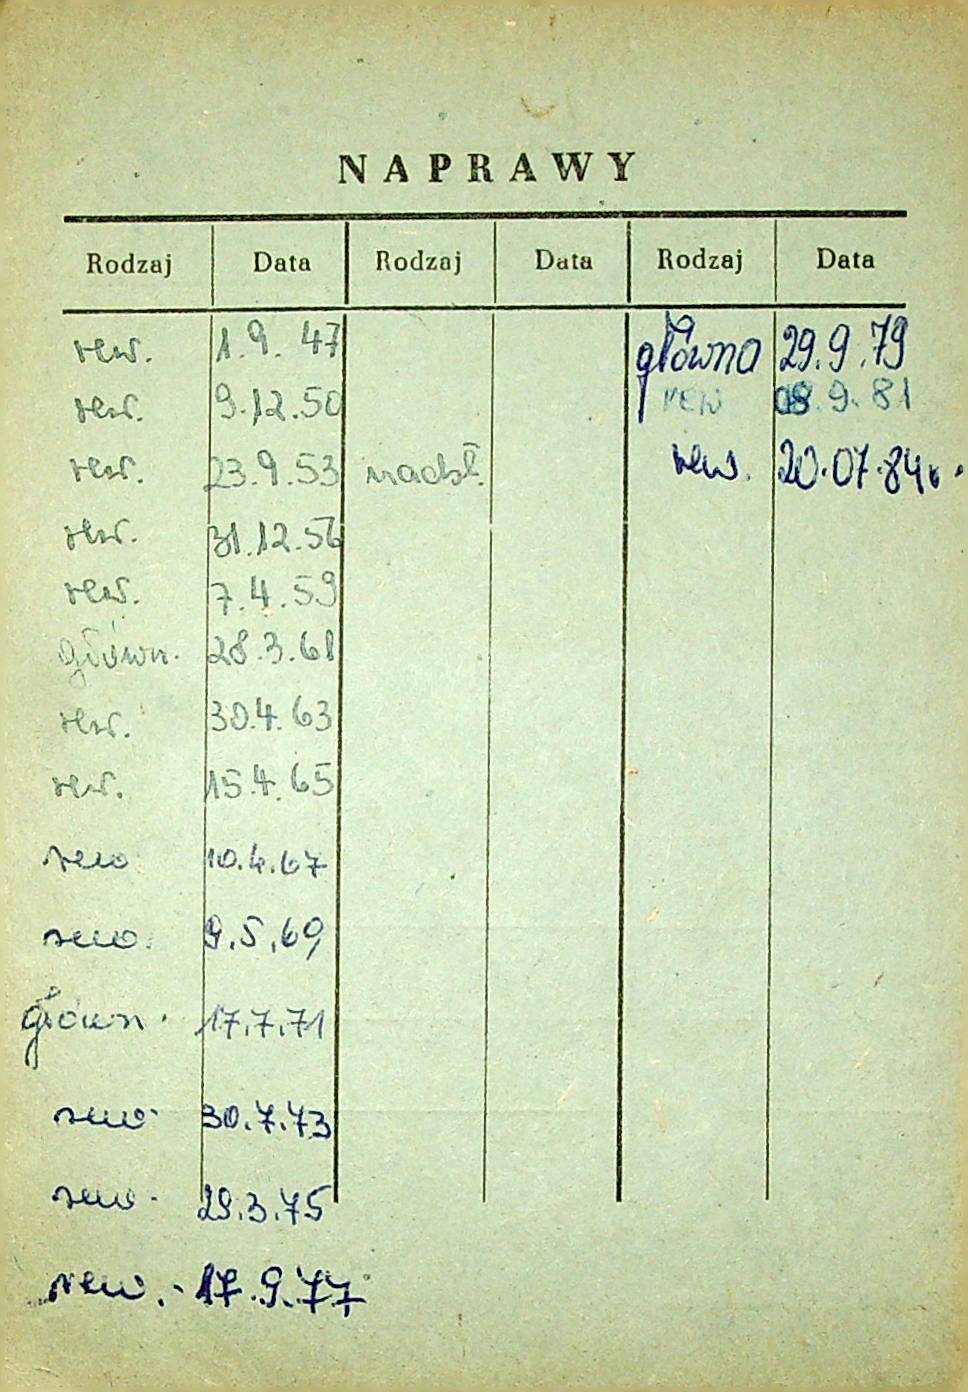 NAPRAWY
Rodzaj Data Rodzaj Data Rodzaj Data
rew. 1.9.47 główna 29.9.79
rew. 9.12.50 rew 08.9.81
rew. 23.9.53 nadsł. rew. 20.07.84r.
rew. 31.12.56
rew. 7.4.59
główn. 28.3.61
rew. 30.4.63
rew. 15.4.65
rew 10.4.67
rew. 9.5.69
główn. 17.7.71
rew. 30.7.73
rew. 29.3.75
rew. - 17.9.77